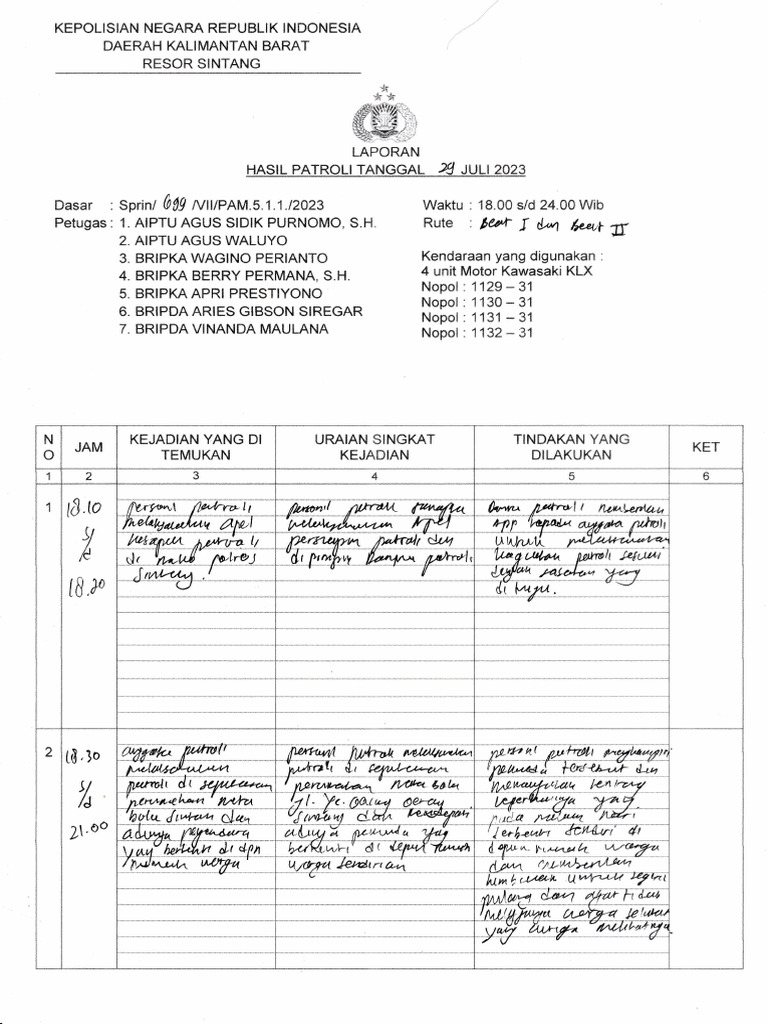 KEPOLISIAN NEGARA REPUBLIK INDONESIA
DAERAH KALIMANTAN BARAT
RESOR SINTANG
LAPORAN
HASIL PATROLI TANGGAL 29 JULI 2023
Dasar : Sprin/ 699 /VII/PAM.5.1.1./2023
Petugas : 1. AIPTU AGUS SIDIK PURNOMO, S.H.
2. AIPTU AGUS WALUYO
3. BRIPKA WAGINO PERIANTO
4. BRIPKA BERRY PERMANA, S.H.
5. BRIPKA APRI PRESTIYONO
6. BRIPDA ARIES GIBSON SIREGAR
7. BRIPDA VINANDA MAULANA
Waktu : 18.00 s/d 24.00 Wib
Rute : Beat I dan Beat II
Kendaraan yang digunakan :
4 unit Motor Kawasaki KLX
Nopol : 1129 – 31
Nopol : 1130 – 31
Nopol : 1131 – 31
Nopol : 1132 – 31
N O
JAM
KEJADIAN YANG DI
TEMUKAN
URAIAN SINGKAT
KEJADIAN
TINDAKAN YANG
DILAKUKAN
KET
1 2 3 4 5 6
1
18.10
s/d
18.20
personil patroli
melaksanakan Apel
patroli
di mako polres
Sintang.
personil patroli
melaksanakan Apel
persiapan patroli dan
di pimpin Danru patroli
Danru patroli memberikan
App kepada anggota patroli
untuk melaksanakan
kegiatan patroli sesuai
dengan sasaran yang
di tuju.
2
18.30
s/d
21.00
anggota patroli
melaksanakan
patroli di seputaran
perumahan
Sintang dan
adanya
yang berhenti di dpn
rumah warga
personil patroli melaksanakan
patroli di seputaran
perumahan
jl. Yc. Oevang Oeray
Sintang dan
adanya pemuda yang
berhenti di depan rumah
warga sendirian
personil patroli menghampiri
pemuda tersebut dan
menanyakan tentang
keperluannya yang
pada malam hari
berhenti sendiri di
depan rumah warga
dan memberikan
himbauan untuk segera
pulang dan agar tidak
warga sekitar
yang melihatnya.